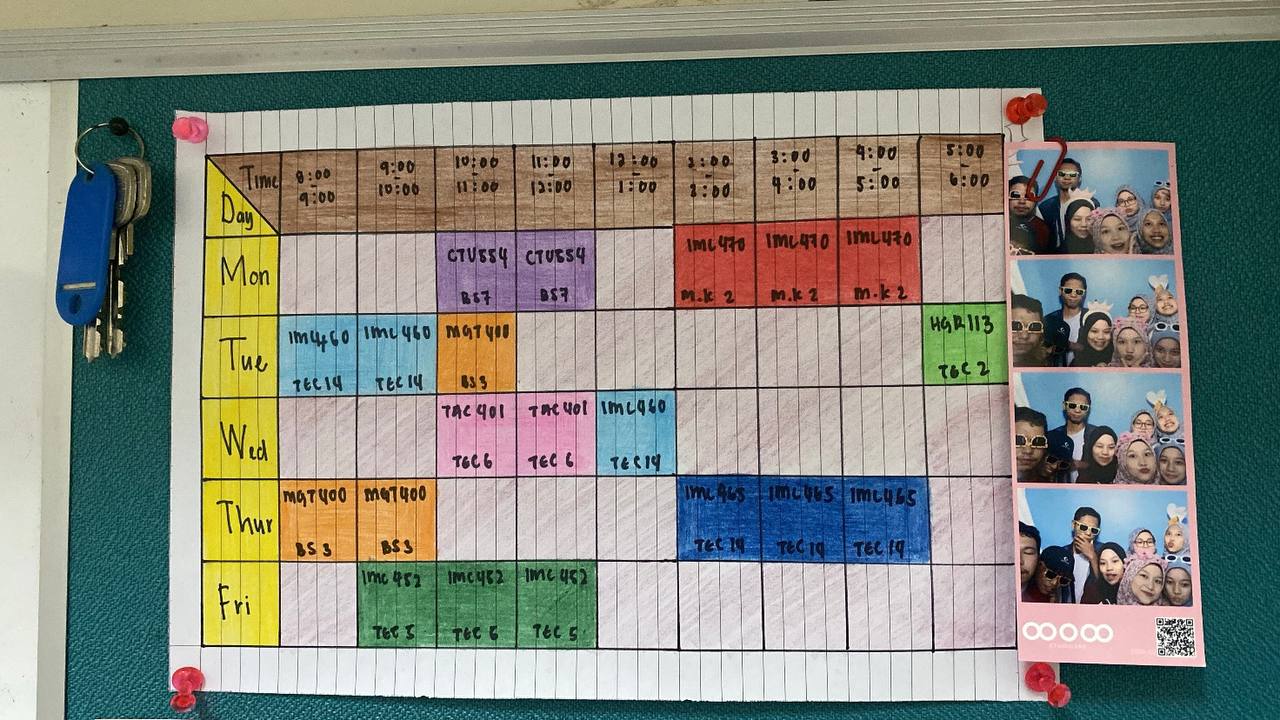 Time
Day
8:00 - 9:00
9:00 - 10:00
10:00 - 11:00
11:00 - 12:00
12:00 - 1:00
2:00 - 3:00
3:00 - 4:00
4:00 - 5:00
5:00 - 6:00
Mon
CTU554
BS7
CTU554
BS7
IML470
M.K 2
IML470
M.K 2
IML470
M.K 2
Tue
IML460
TEC14
IML460
TEC14
MGT400
BS3
HGR113
TEC 2
Wed
TAC401
TEC6
TAC401
TEC 6
IML460
TEC14
Thur
MGT400
BS3
MGT400
BS3
IML465
TEC 14
IML465
TEC 14
IML465
TEC 14
Fri
IMC452
TEC 5
IMC452
TEC 6
IMC452
TEC 5